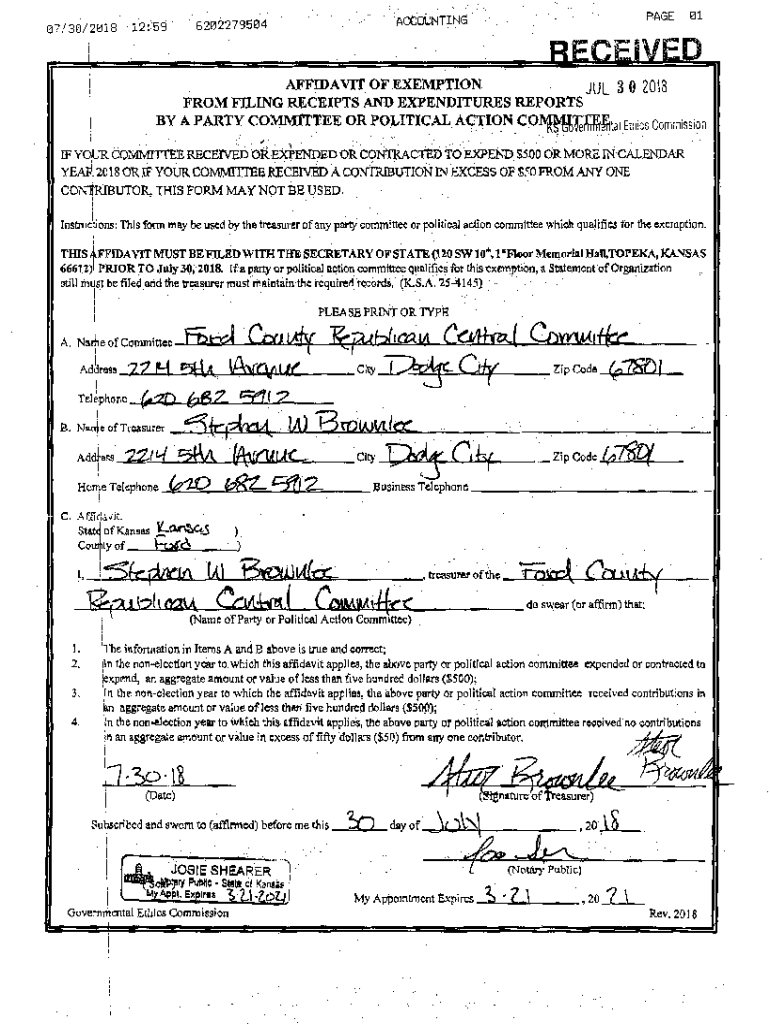 07/30/2018 12:59 6202279504 ACCOUNTING PAGE 01
RECEIVED
JUL 30 2018
KS Governmental Ethics Commission
AFFIDAVIT OF EXEMPTION
FROM FILING RECEIPTS AND EXPENDITURES REPORTS
BY A PARTY COMMITTEE OR POLITICAL ACTION COMMITTEE
IF YOUR COMMITTEE RECEIVED OR EXPENDED OR CONTRACTED TO EXPEND $500 OR MORE IN CALENDAR
YEAR 2018 OR IF YOUR COMMITTEE RECEIVED A CONTRIBUTION IN EXCESS OF $50 FROM ANY ONE
CONTRIBUTOR, THIS FORM MAY NOT BE USED.
Instructions: This form may be used by the treasurer of any party committee or political action committee which qualifies for the exemption.
THIS AFFIDAVIT MUST BE FILED WITH THE SECRETARY OF STATE (120 SW 10th, 1st Floor Memorial Hall, TOPEKA, KANSAS
66612) PRIOR TO July 30, 2018. If a party or political action committee qualifies for this exemption, a Statement of Organization
still must be filed and the treasurer must maintain the required records. (K.S.A. 25-4145)
PLEASE PRINT OR TYPE
A. Name of Committee Ford County Republican Central Committee
Address 2214 5th Avenue City Dodge City Zip Code 67801
Telephone 620 682 5912
B. Name of Treasurer Stephen W Brownlee
Address 2214 5th Avenue City Dodge City Zip Code 67801
Home Telephone 620 682 5912 Business Telephone
C. Affidavit.
State of Kansas Kansas )
County of Ford )
I, Stephen W Brownlee treasurer of the Ford County
Republican Central Committee do swear (or affirm) that:
(Name of Party or Political Action Committee)
1. The information in Items A and B above is true and correct;
2. In the non-election year to which this affidavit applies, the above party or political action committee expended or contracted to
expend, an aggregate amount or value of less than five hundred dollars ($500);
3. In the non-election year to which the affidavit applies, the above party or political action committee received contributions in
an aggregate amount or value of less than five hundred dollars ($500);
4. In the non-election year to which this affidavit applies, the above party or political action committee received no contributions
in an aggregate amount or value in excess of fifty dollars ($50) from any one contributor.
7-30-18 Brownlee Brownlee
(Date) (Signature of Treasurer)
Subscribed and sworn to (affirmed) before me this 30 day of July, 2018
(Notary Public)
JOSIE SHEARER
Notary Public - State of Kansas
My Appt. Expires 3-21-2021
My Appointment Expires 3-21, 2021
Governmental Ethics Commission Rev. 2018